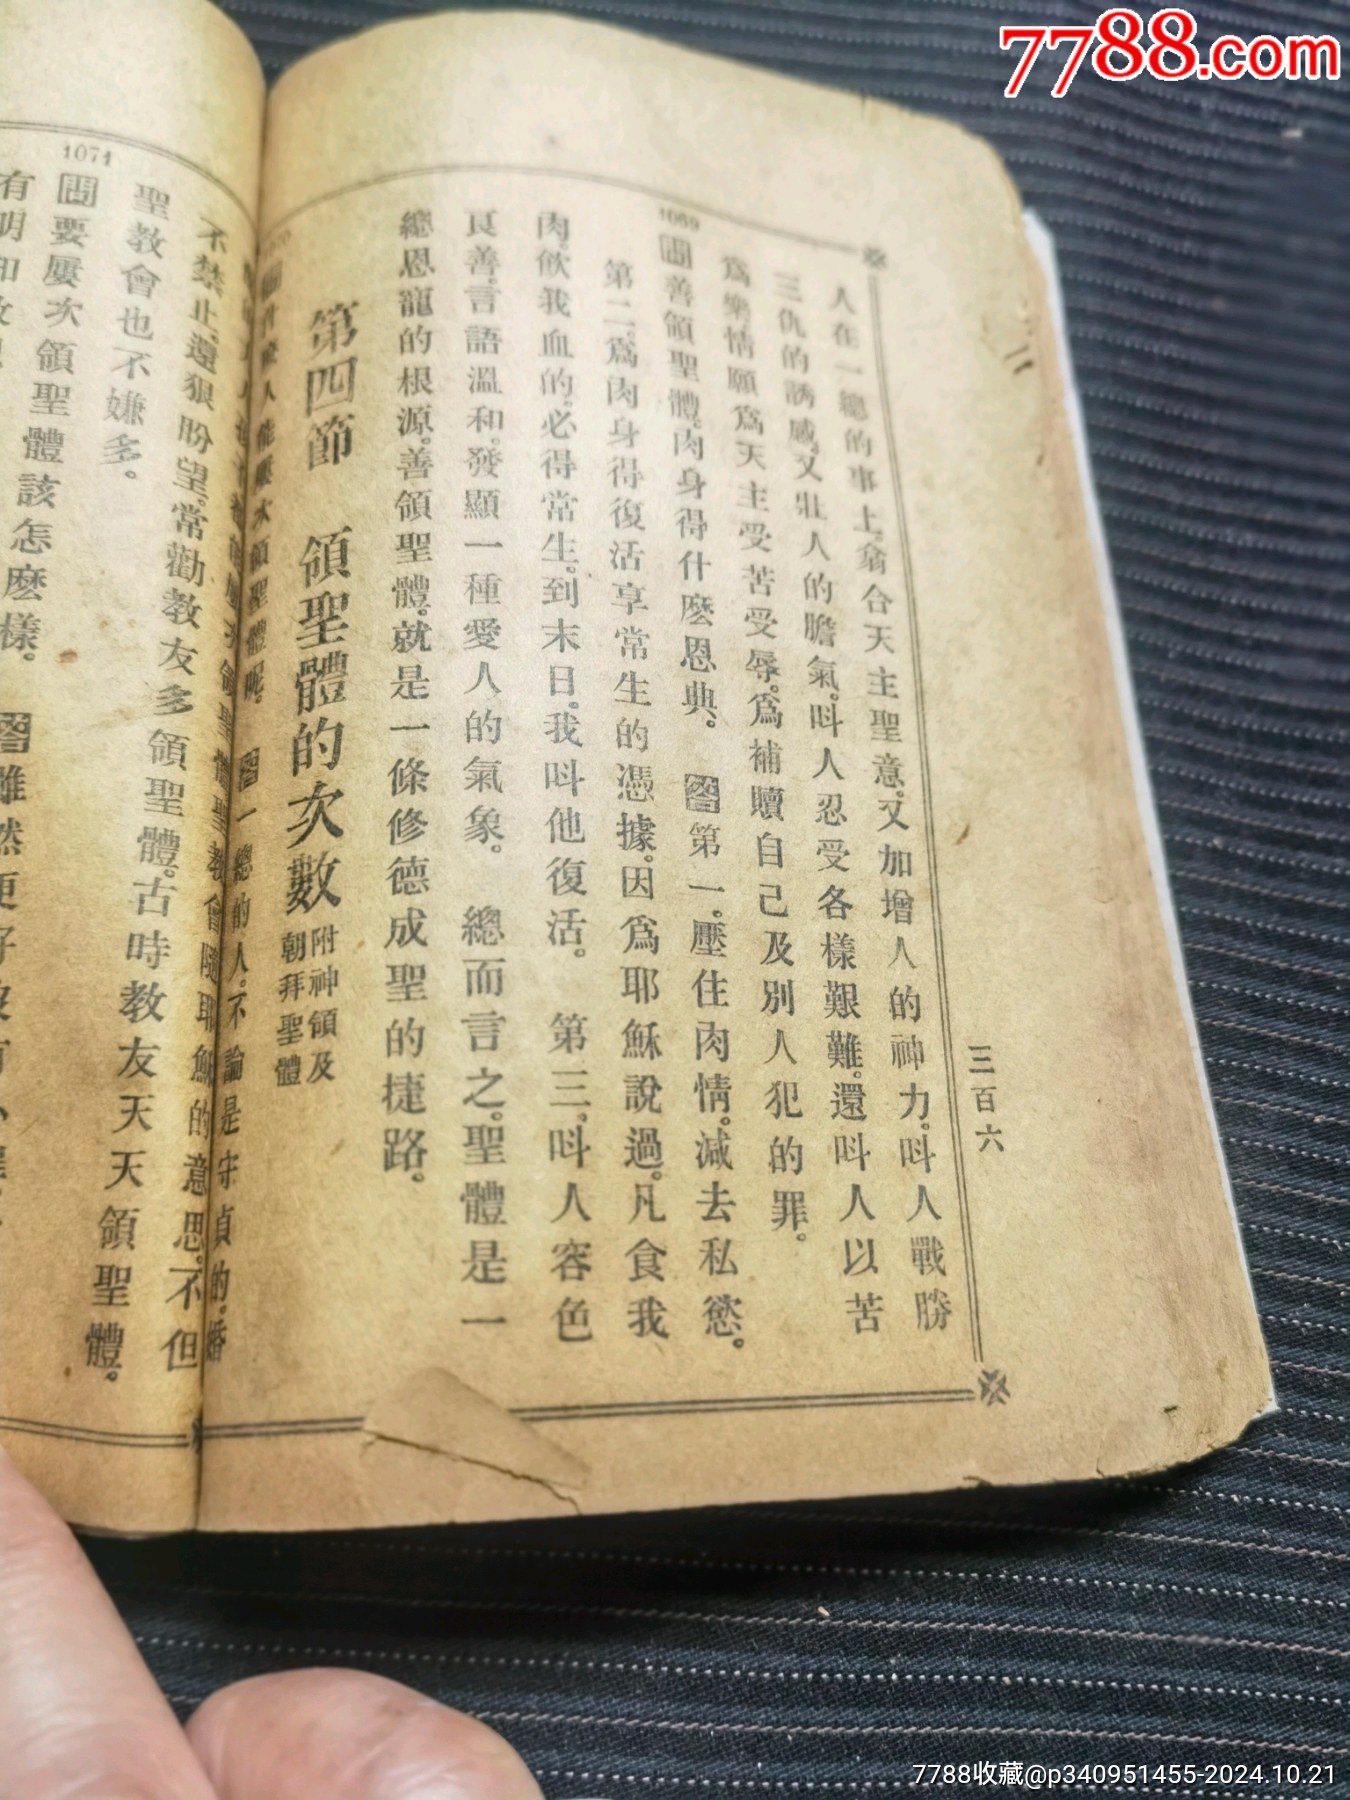 7788.com
三百六
人在一總的事上。翕合天主聖意。又加增人的神力。呌人戰勝
三仇的誘感。又壯人的膽氣。呌人忍受各樣艱難。還呌人以苦
爲樂。情願爲天主受苦受辱。爲補贖自己及別人犯的罪。
1069
問善領聖體。肉身得什麽恩典。 答第一。壓住肉情。減去私慾。
第二。爲肉身得復活享常生的憑據。因爲耶穌說過。凡食我
肉。飲我血的。必得常生。到末日。我呌他復活。 第三。呌人容色
良善。言語溫和。發顯一種愛人的氣象。 總而言之。聖體是一
總恩寵的根源。善領聖體。就是一條修德成聖的捷路。
第四節 領聖體的次數
附神領及
朝拜聖體
人能 領聖體呢。 答一總的人。不論是守貞的。婚
領聖體。聖教會隨耶穌的意思。不但
不禁止。還狠盼望。常勸教友多領聖體。古時教友天天領聖體。
聖教會也不嫌多。
1071
問要屢次領聖體該怎麽樣。 答雖然更好
有明
7788收藏@p340951455-2024.10.21